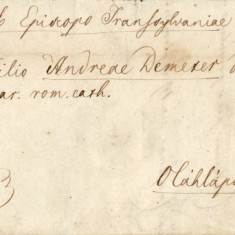 Episcopo Transsylvaniae
Andreae Demeter
par. rom. cath.
Oláhláp